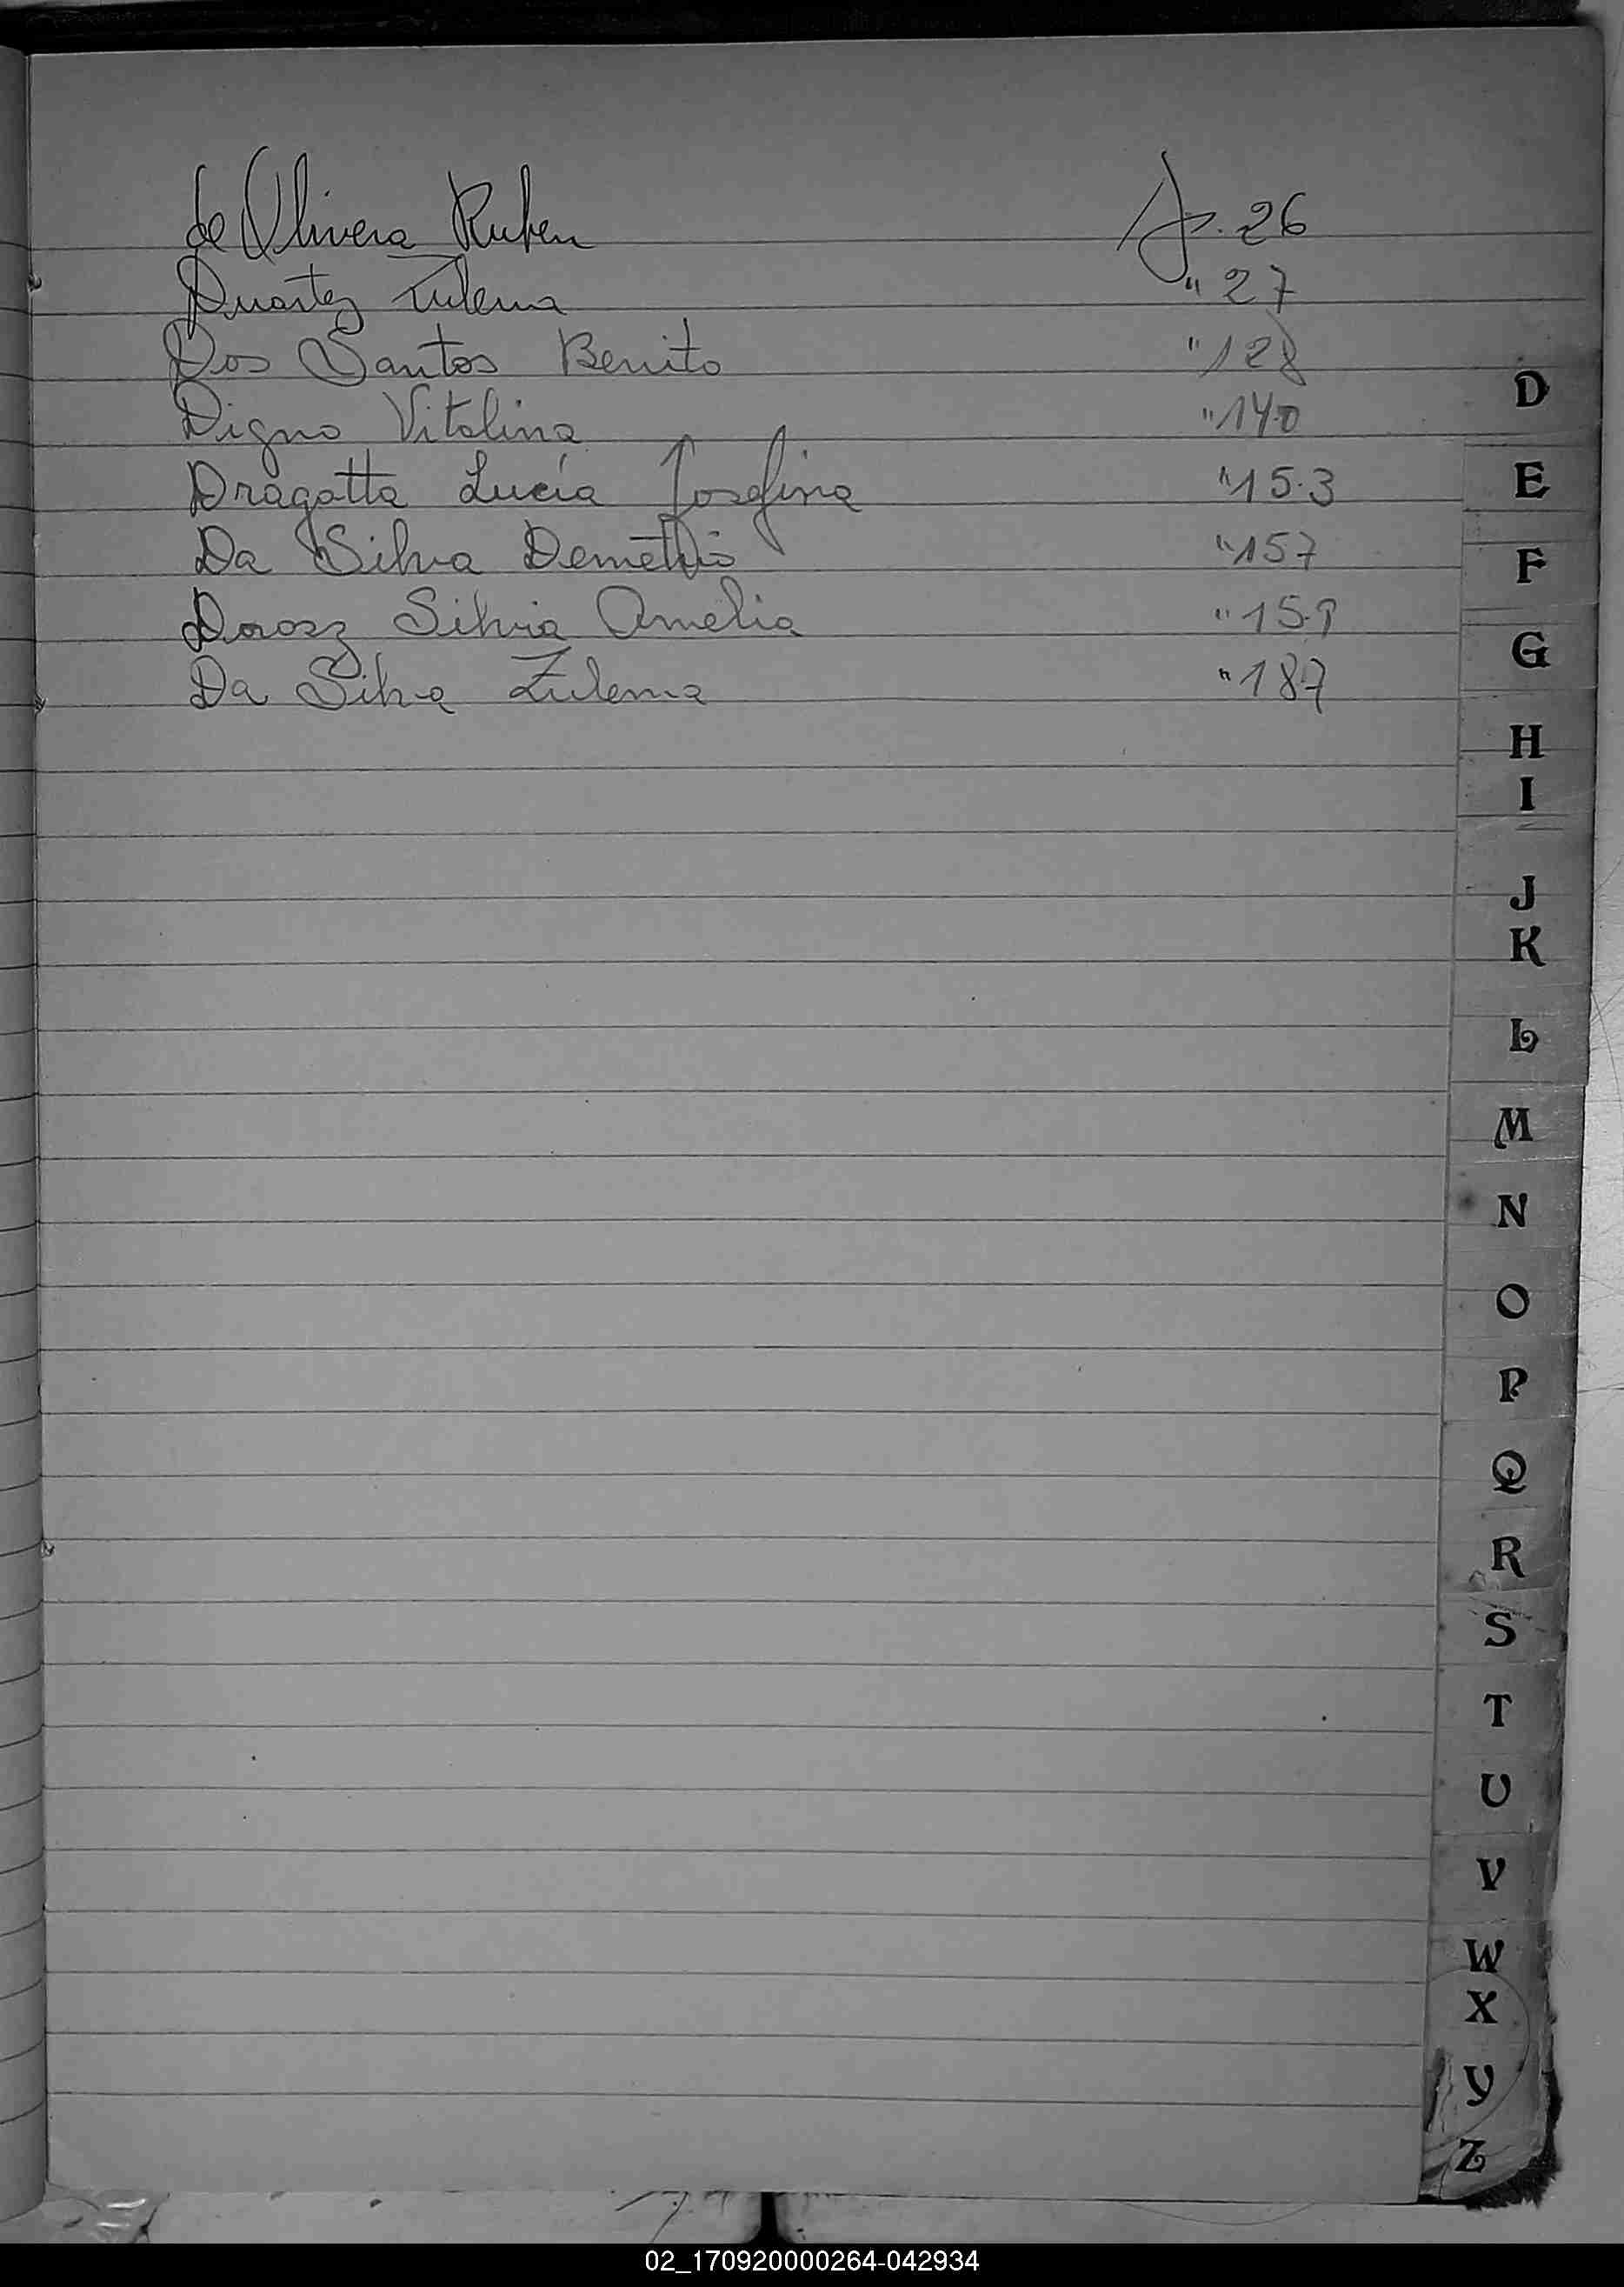 de Olivera Ruben fs. 26
Duartez Zulema " 27
Dos Santos Benito " 128
Digno Vitalina " 140
Dragotta Lucía Josefina " 153
Da Silva Demetrio " 157
Dorosz Silvia Amelia " 159
Da Silva Zulema " 187
D
E
F
G
H
I
J
K
L
M
N
O
P
Q
R
S
T
U
V
W
X
Y
Z
02_170920000264-042934